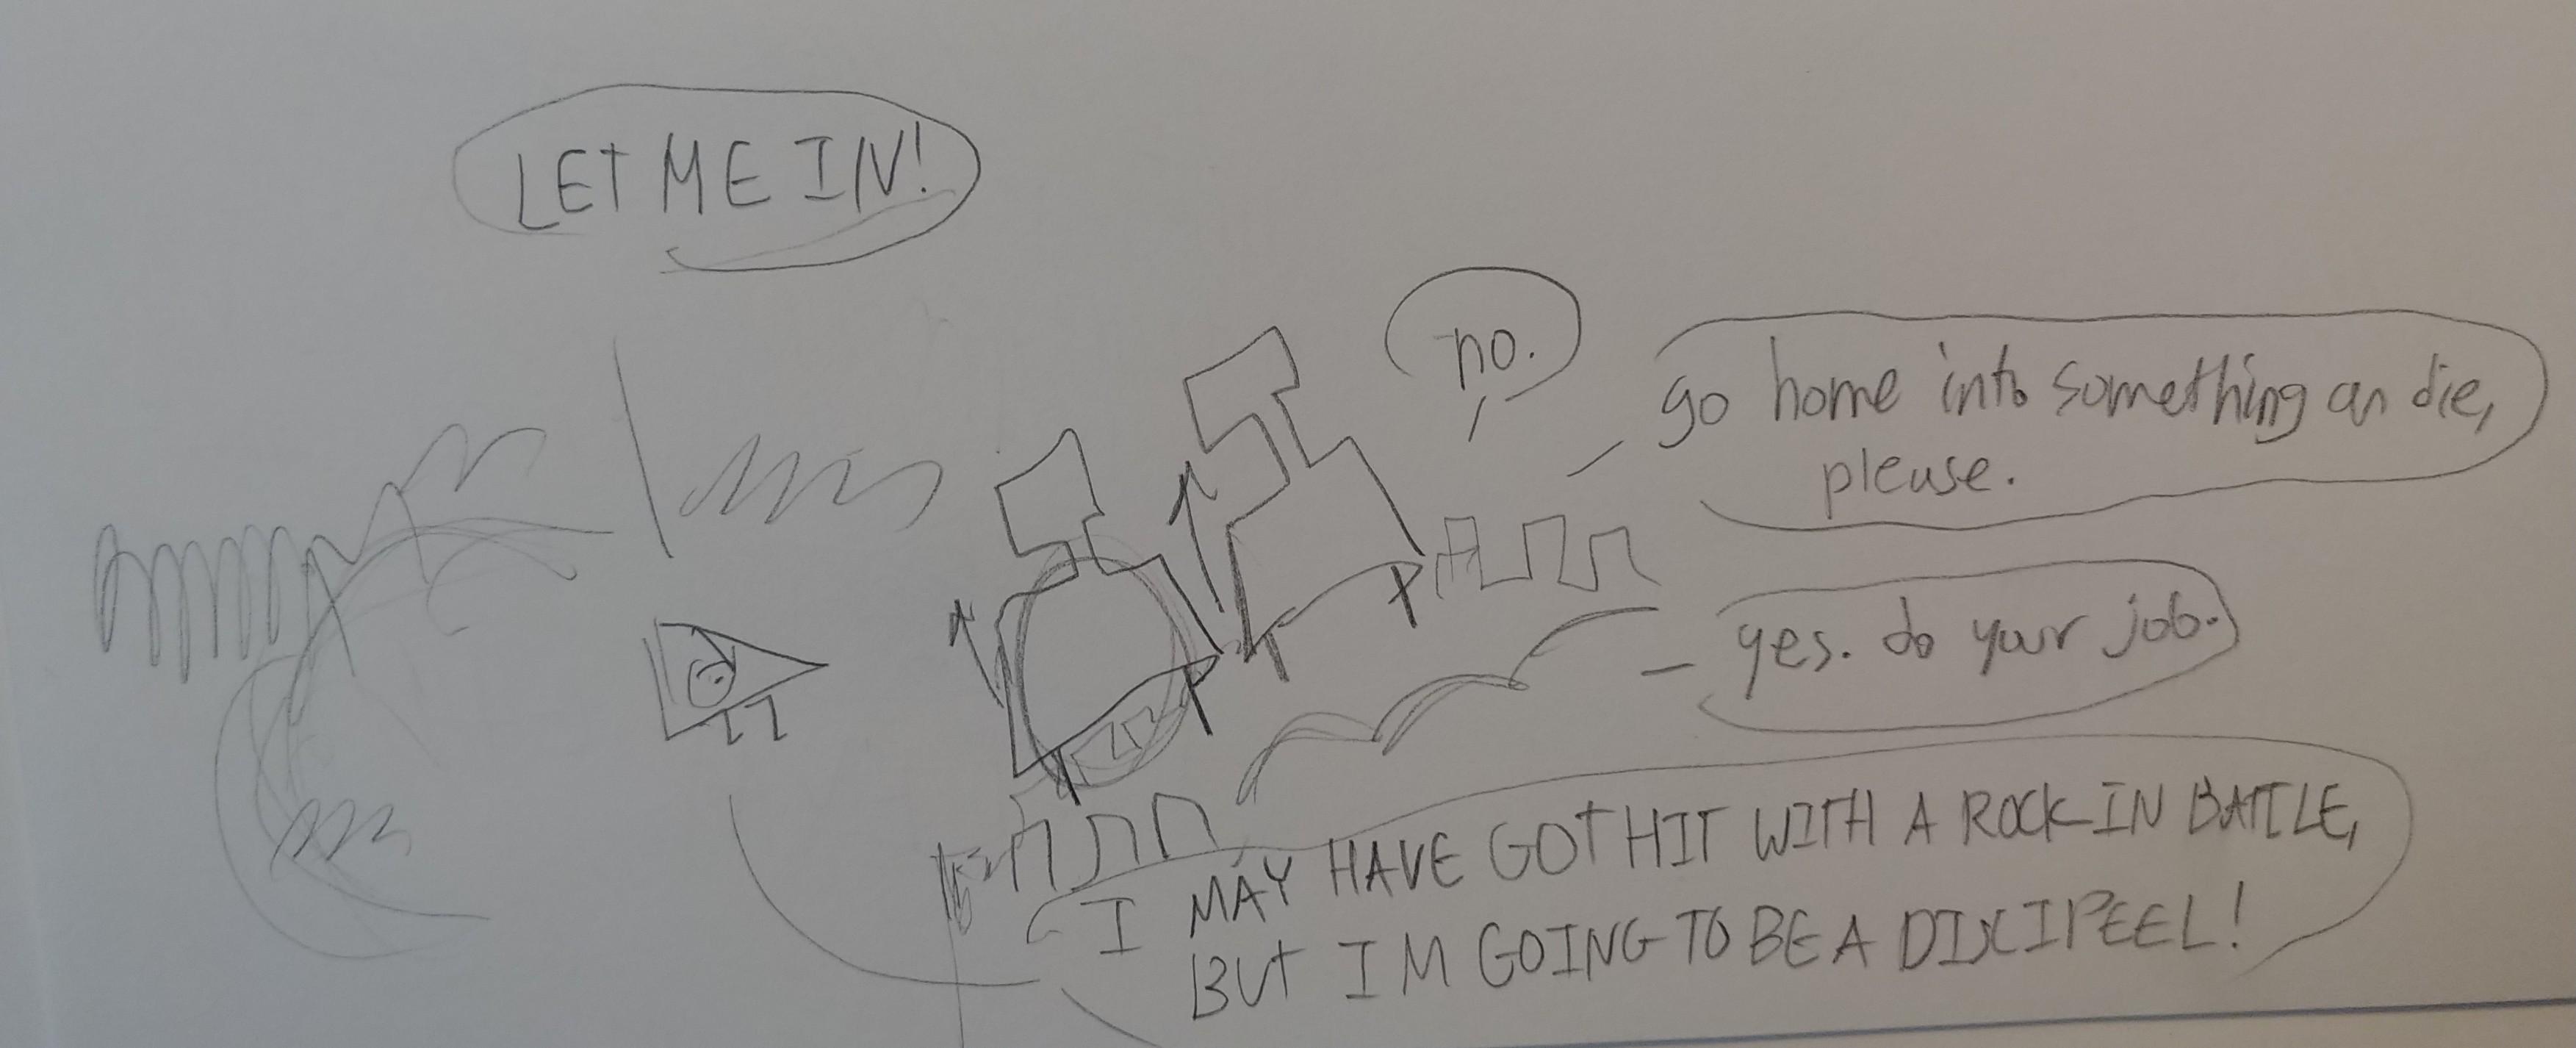 LET ME IN!
no.
go home into something an die,
please.
yes. do your job.
I MAY HAVE GOT HIT WITH A ROCK IN BATTLE,
BUT I M GOING TO BE A DISCIPEEL!